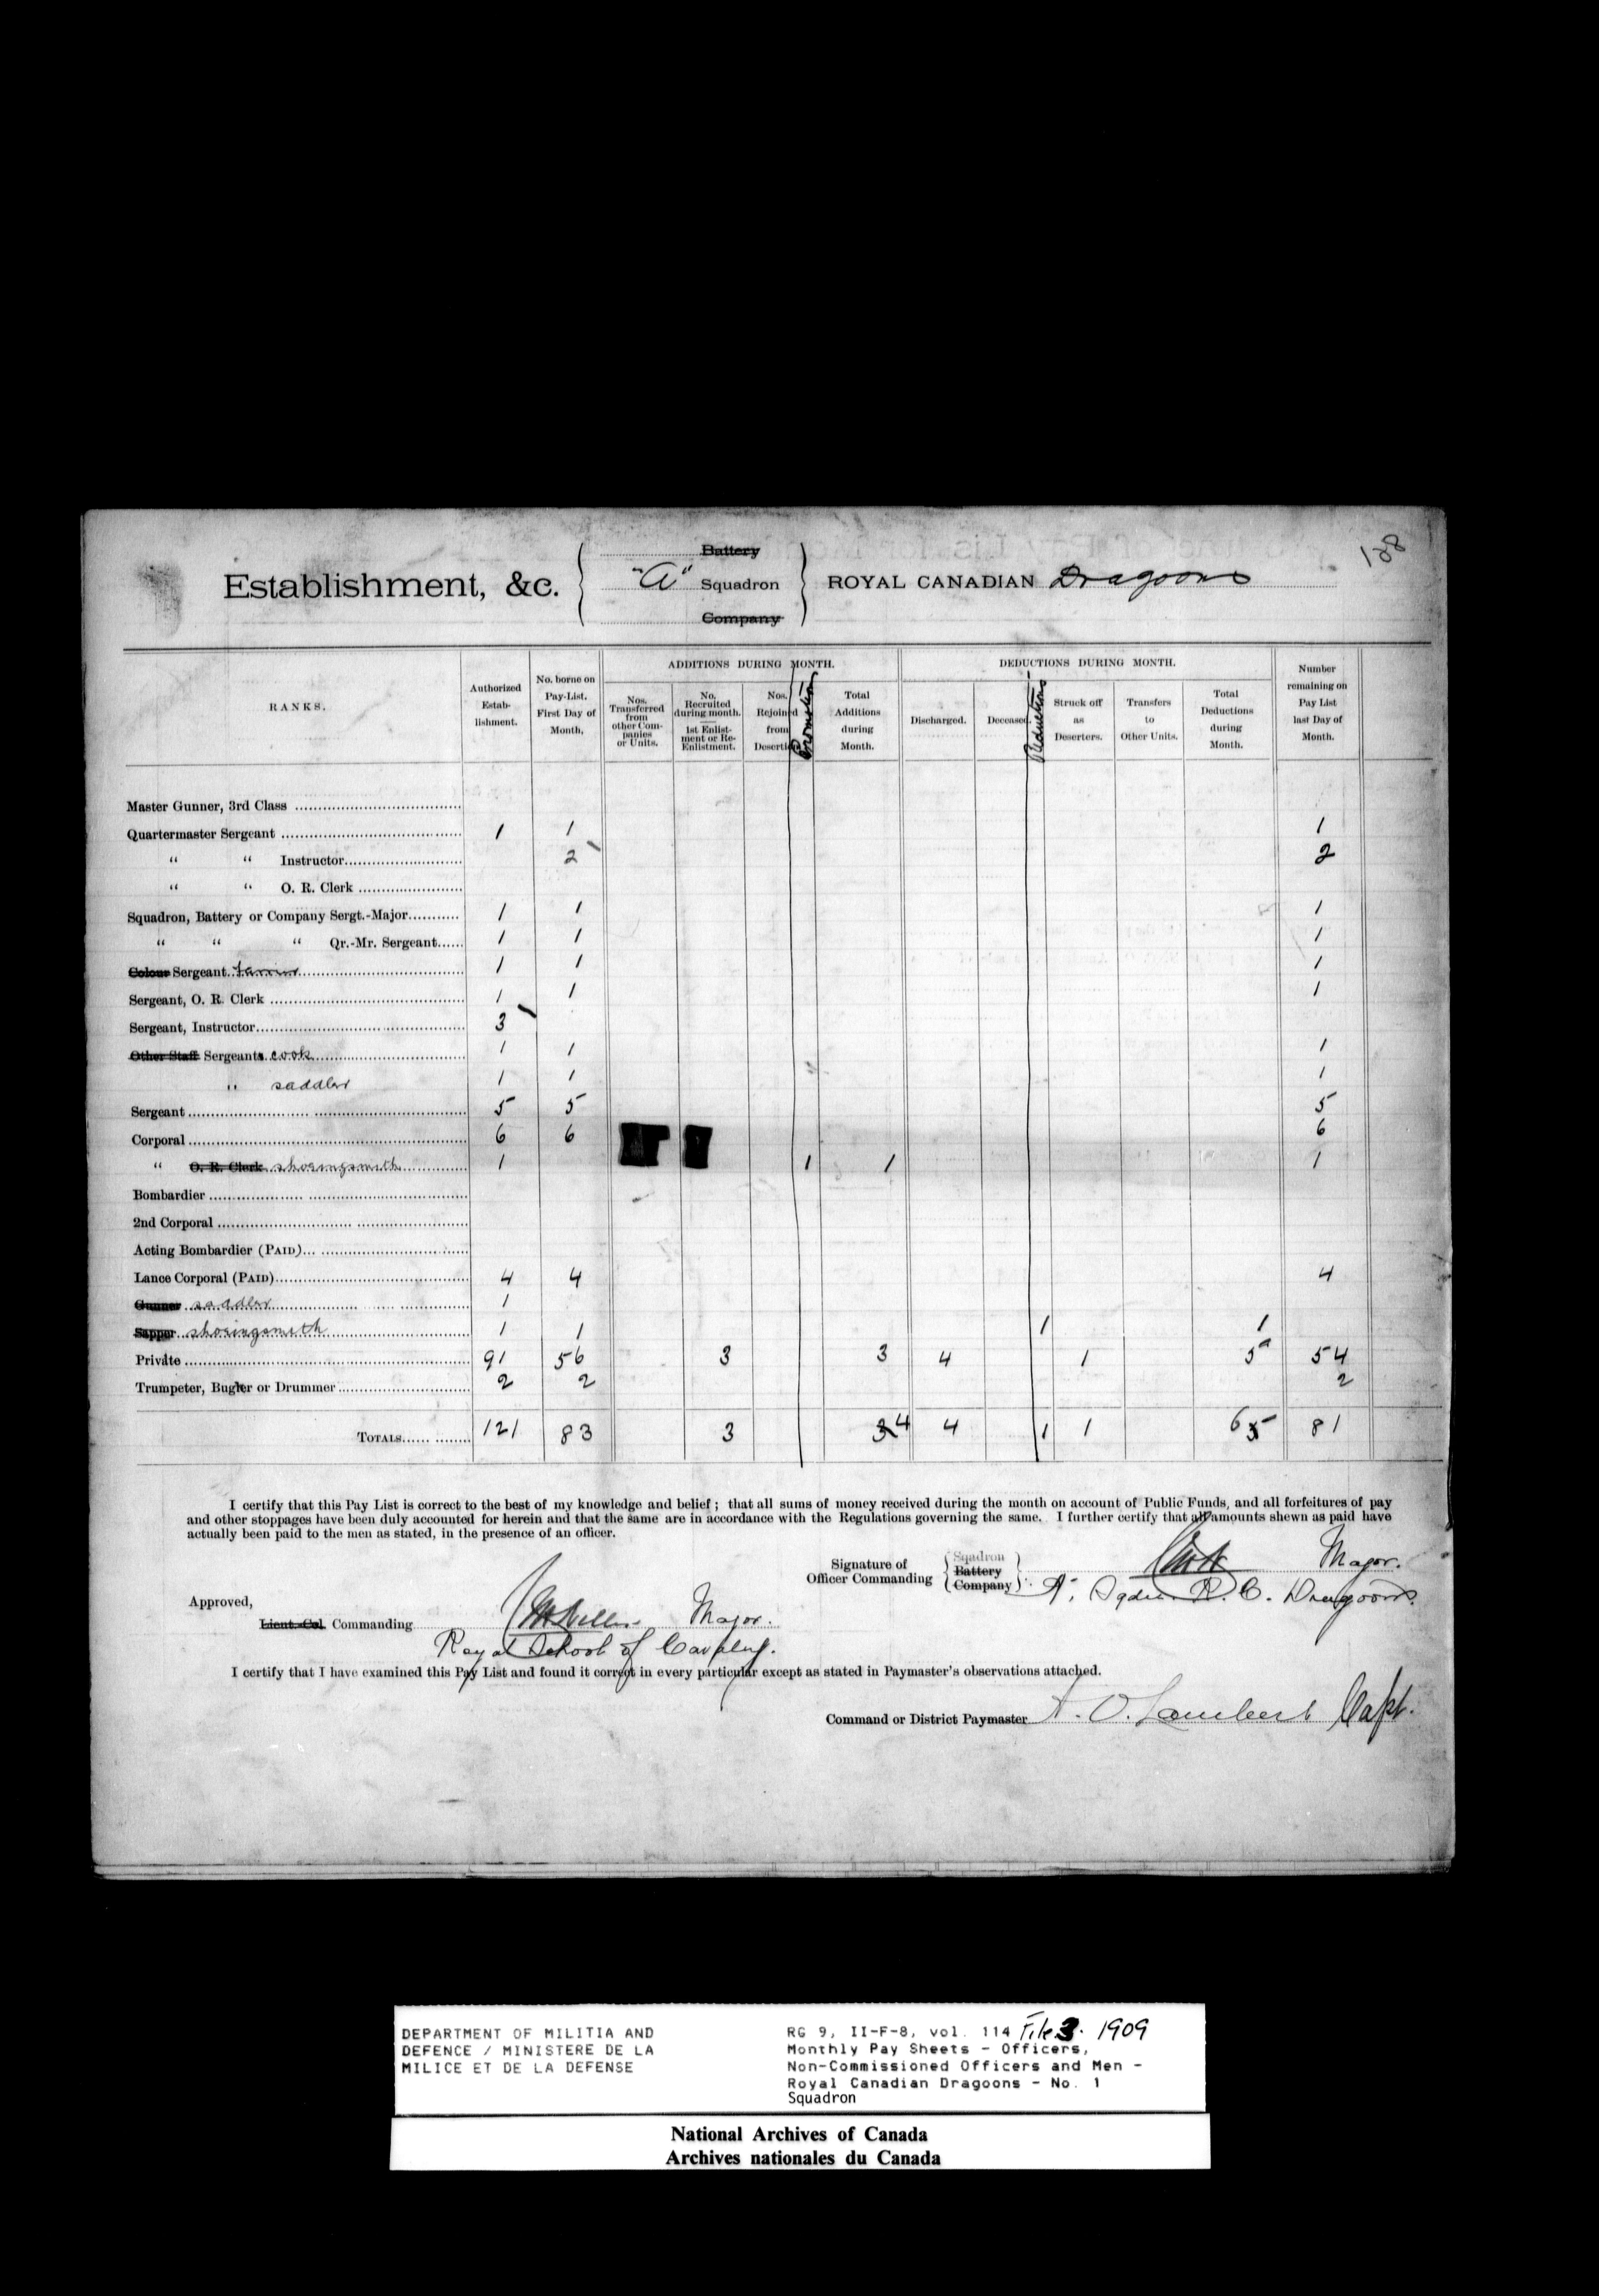 138
Battery
Establishment, &c. "A" Squadron ROYAL CANADIAN Dragoons
Company
RANKS.
Authorized Establishment.
No. borne on Pay-List. First Day of Month.
ADDITIONS DURING MONTH.
Nos. Transferred from other Companies or Units.
No. Recruited during month. 1st Enlistment or Re-Enlistment.
Nos. Rejoined from Desertion
Promotion
Total Additions during Month.
DEDUCTIONS DURING MONTH.
Discharged.
Deceased.
Reductions
Struck off as Deserters.
Transfers to Other Units.
Total Deductions during Month.
Number remaining on Pay List last Day of Month.
Master Gunner, 3rd Class
Quartermaster Sergeant 1 1 1
" " Instructor 2 2
" " O. R. Clerk
Squadron, Battery or Company Sergt.-Major 1 1 1
" " " Qr.-Mr. Sergeant 1 1 1
Colour Sergeant 1 1 1
Sergeant, O. R. Clerk 1 1 1
Sergeant, Instructor 3
Other Staff Sergeants cook 1 1 1
" saddler 1 1 1
Sergeant 5 5 5
Corporal 6 6 6
" O. R. Clerk shoeingsmith 1 1 1 1
Bombardier
2nd Corporal
Acting Bombardier (PAID)
Lance Corporal (PAID) 4 4 4
Gunner saddler 1
Sapper shoeingsmith 1 1 1 1
Private 91 56 3 3 4 1 5 54
Trumpeter, Bugler or Drummer 2 2 2
TOTALS 121 83 3 3 4 4 1 1 6 5 81
I certify that this Pay List is correct to the best of my knowledge and belief; that all sums of money received during the month on account of Public Funds, and all forfeitures of pay
and other stoppages have been duly accounted for herein and that the same are in accordance with the Regulations governing the same. I further certify that all amounts shewn as paid have
actually been paid to the men as stated, in the presence of an officer.
Signature of Officer Commanding Sqadron Battery Company Major.
A, Sqdn. R. C. Dragoons.
Approved,
Lieut.-Col. Commanding Major.
Royal School of Cavalry.
I certify that I have examined this Pay List and found it correct in every particular except as stated in Paymaster's observations attached.
Command or District Paymaster A. O. Lambert Capt.
DEPARTMENT OF MILITIA AND
DEFENCE / MINISTERE DE LA
MILICE ET DE LA DEFENSE
RG 9, II-F-8, vol. 114 File 3. 1909
Monthly Pay Sheets - Officers,
Non-Commissioned Officers and Men -
Royal Canadian Dragoons - No. 1
Squadron
National Archives of Canada
Archives nationales du Canada